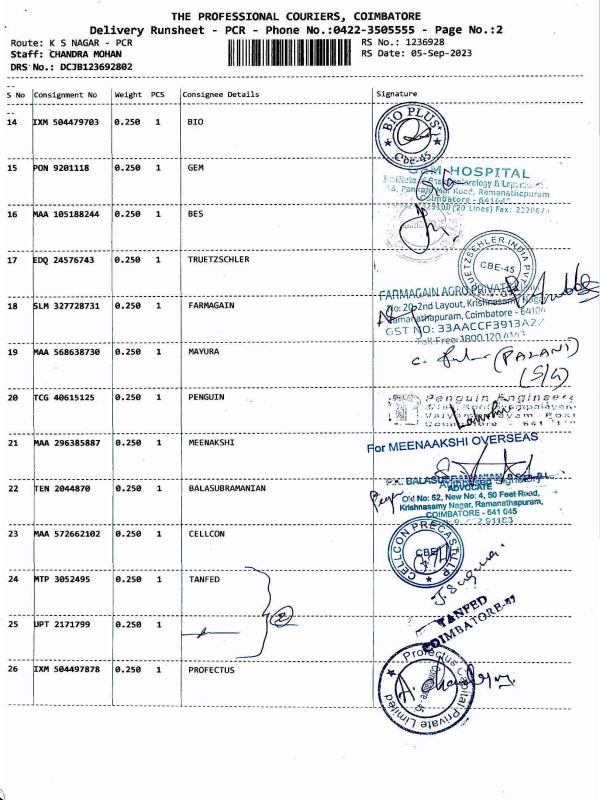 THE PROFESSIONAL COURIERS, COIMBATORE
Delivery Runsheet - PCR - Phone No.:0422-3505555 - Page No.:2
Route: K S NAGAR - PCR
RS No.: 1236928
Staff: CHANDRA MOHAN
RS Date: 05-Sep-2023
DRS No.: DCJB123692802
S No Consignment No Weight PCS Consignee Details Signature
14 IXM 504479703 0.250 1 BIO
BIO PLUS
Cbe-45
15 PON 9201118 0.250 1 GEM
GEM HOSPITAL
Road, Ramanathapuram
Coimbatore - 641045
(20 Lines) Fax:
16 MAA 105188244 0.250 1 BES
17 EDQ 24576743 0.250 1 TRUETZSCHLER
TRUETZSCHLER INDIA PVT
CBE-45
18 SLM 327728731 0.250 1 FARMAGAIN
FARMAGAIN AGRO PRIVATE
No: 20-2nd Layout, Krishnasamy Nagar
Ramanathapuram, Coimbatore - 64104
GST NO: 33AACCF3913A2
Toll-Free: 1800 120 4143
19 MAA 568638730 0.250 1 MAYURA
(PALANI)
(S/G)
20 TCG 40615125 0.250 1 PENGUIN
Penguin Engineers
Post
21 MAA 296385887 0.250 1 MEENAKSHI
For MEENAAKSHI OVERSEAS
22 TEN 2044870 0.250 1 BALASUBRAMANIAN
ADVOCATE
Old No: 52, New No: 4, 50 Feet Road,
Krishnasamy Nagar, Ramanathapuram,
COIMBATORE - 641 045
23 MAA 572662102 0.250 1 CELLCON
CELLCON PRECAST LLP
CBE
24 MTP 3052495 0.250 1 TANFED
TANFED
COIMBATORE-45
25 UPT 2171799 0.250 1
26 IXM 504497878 0.250 1 PROFECTUS
Profectus Capital Private Limited